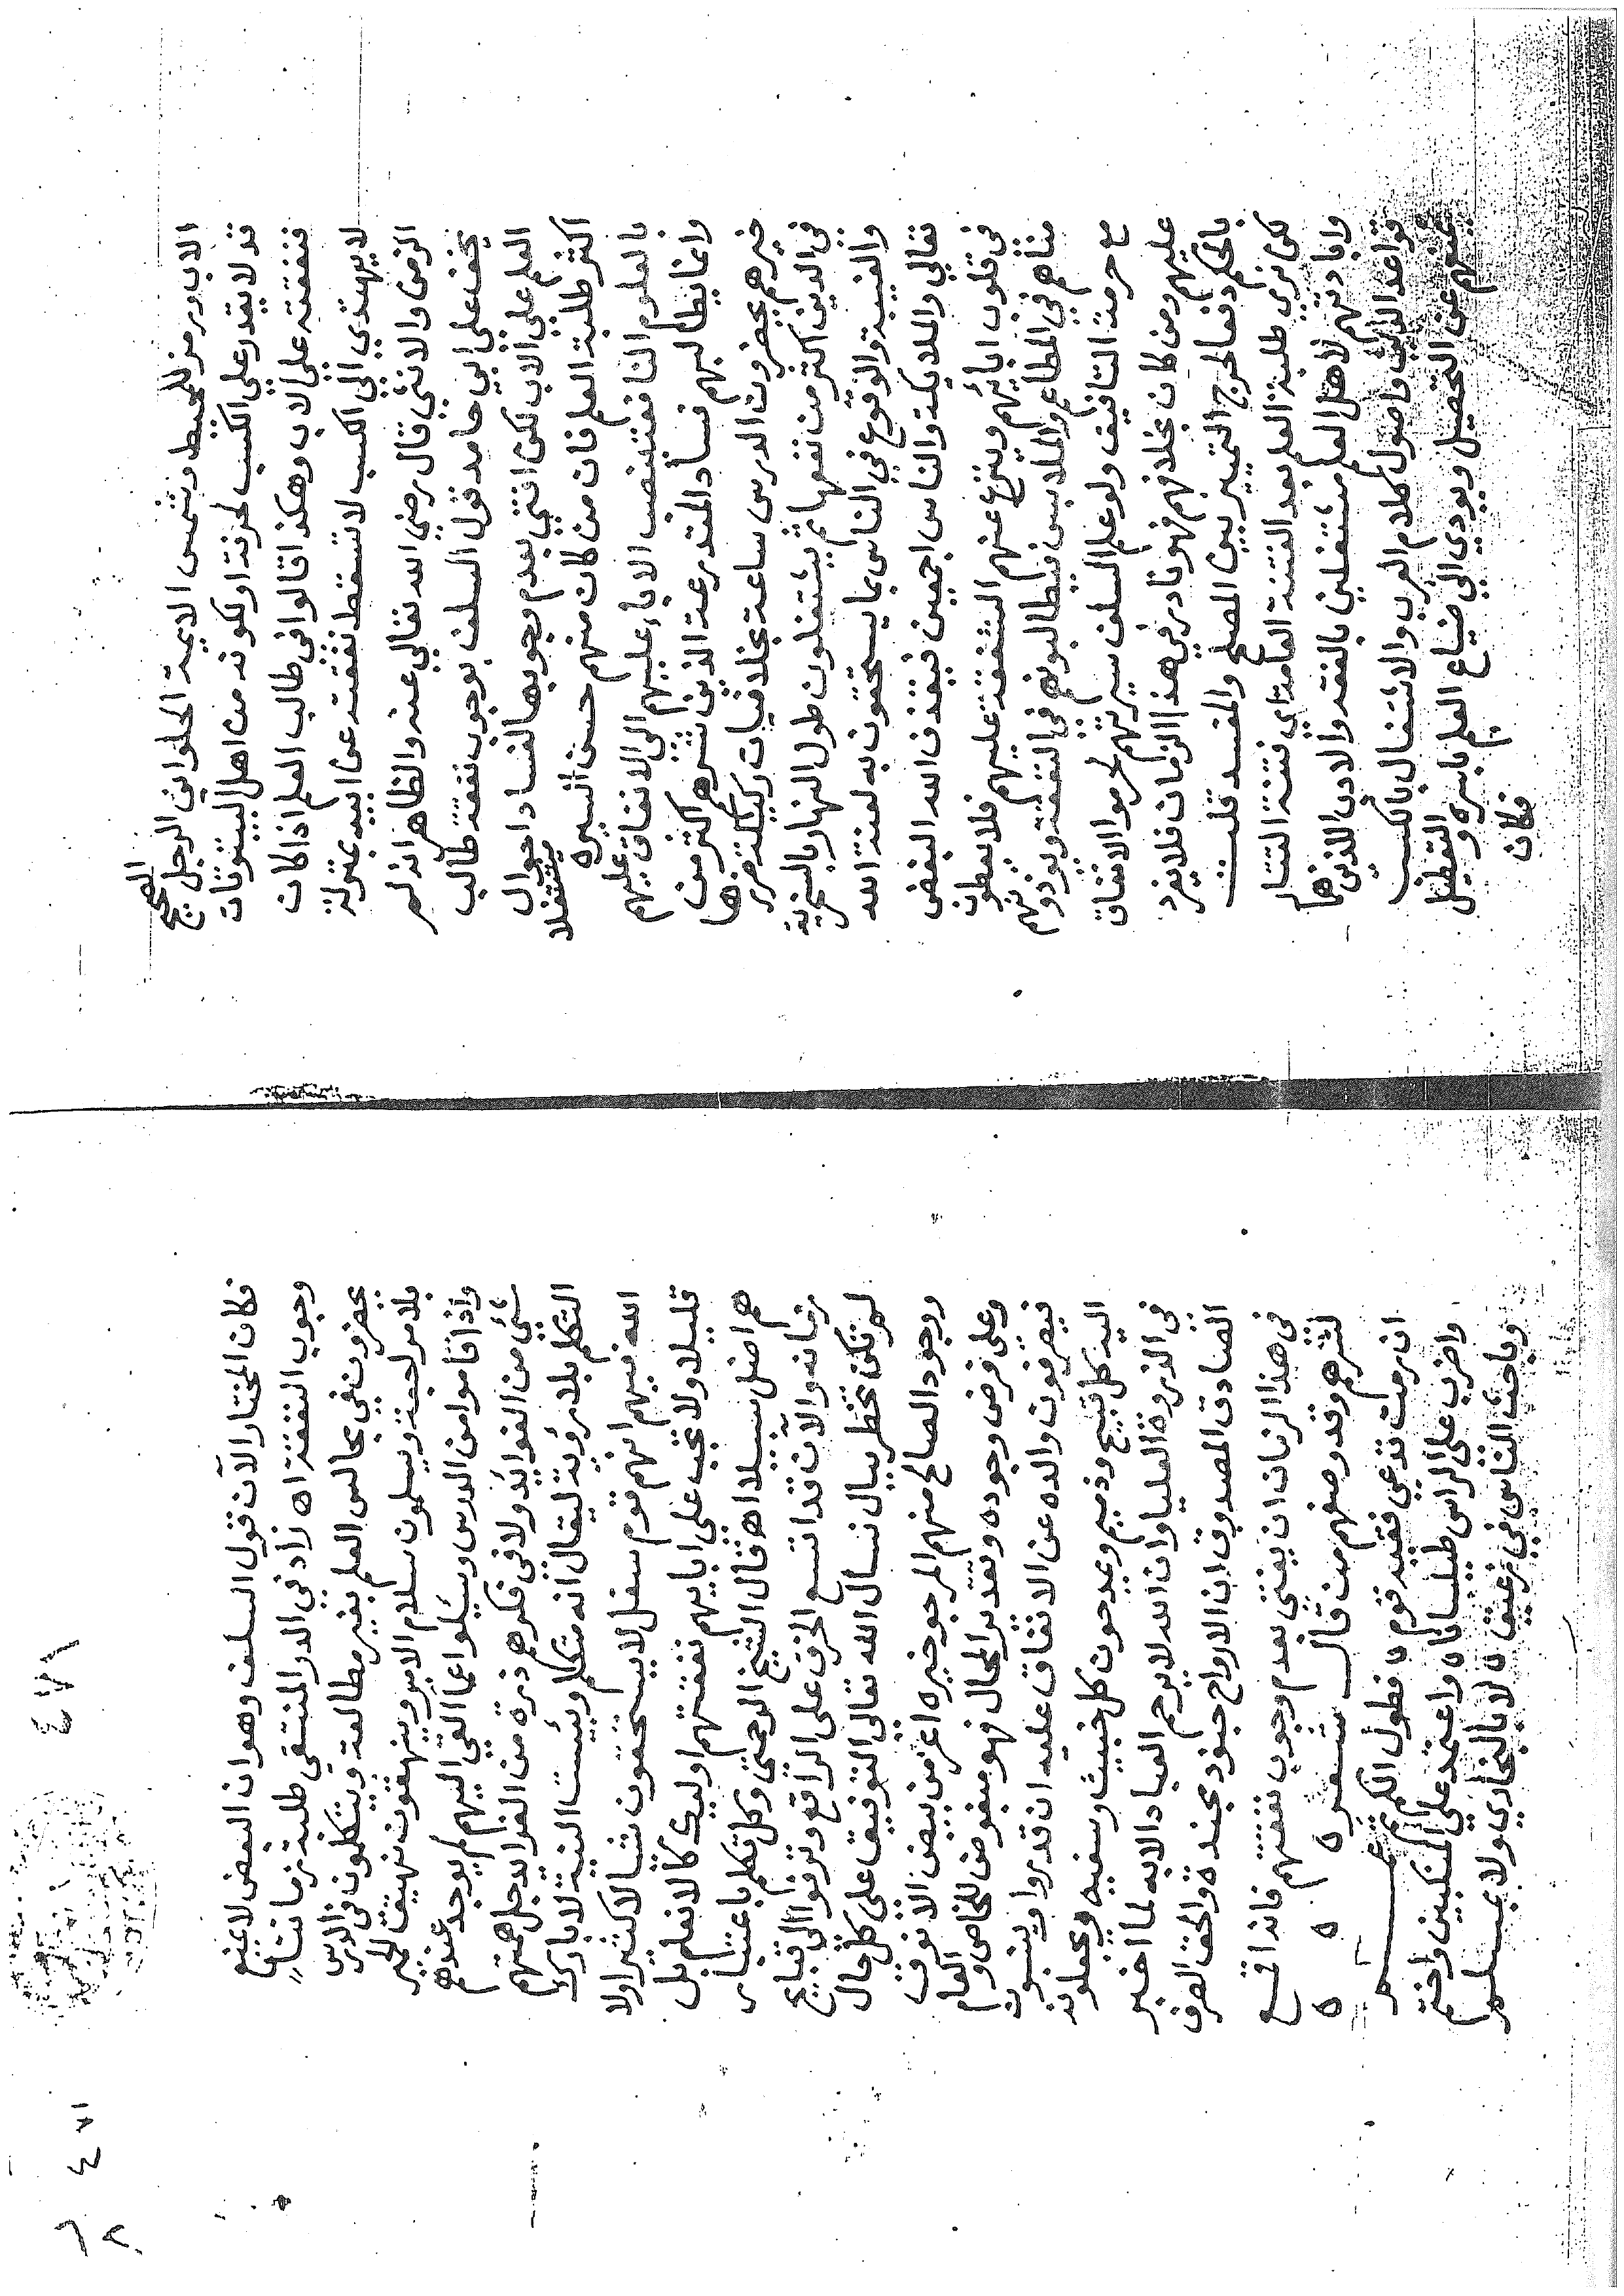 الاب ورمز للمحيط وشمس الايمة الحلواني الرجل الصحيح
قد لا يقدر علي الكسب لحرفة او لكونه من اهل البيوتات
فنفقته علي الاب وهكذا قالوا في طالب العلم اذا كان
لا يهتدي الي الكسب لا تسقط نفقته عن ابيه بمنزلة
الزمن والانثي قال رضي الله تعالي عنه والظاهر انه لم
يخف علي ابي حامد قول السلف بوجوب نفقة طالب
العلم علي الاب لكن افتي بعدم وجوبها لفساد احوال
اكثر طلبة العلم فان من كان منهم حسن السيرة مشتغلا
بالعلوم النافعة تنصب الاباء عليهم الي الانفاق عليهم
وانما يطالبهم فساد المقدرعة الذين شرهم اكثر من
خيرهم يحضرون الدرس ساعة بخلافيات ركيكة ضررها
في الدين اكثر من نفعها ثم يشتغلون طول النهار بالسخرية
والغيبة والوقوع في الناس بما يستحقون به لعنة الله
تعالي والملايكة والناس اجمعين فيقذف الله البغض
في قلوب ابائهم وينزع عنهم الشفقة عليهم فلا يعطون
مناهم في المطاعم والملابس فيطالبونهم في النفقة ويوذونهم
مع حرمة التافيف ولو علم السلف سيرتهم لحرموا الانفاق
عليهم ومن كان بخلافهم فهو نادر في هذا الزمان فلا يفرد
بالحكم دفعا لحرج التمييز بين المصلح والمفسد قلت
لكن نري طلبة العلم بعد الفتنة العامة اي فتنة التتار
وابادتهم لاهل العلم مشتغلين بالفقه والادب اللذين هما
قواعد الدين واصول كلام العرب والاشتغال بالكسب
يمنعهم عن التحصيل ويودي الي ضياع العلم باسره والتعطيل
فكان
فكان المختار الآن قول السلف وهو ان البعض لا يمنع
وجوب النفقة اه زاد في الدر المنتقي طلبة زماننا
يحضرون في مجالس العلم بغير مطالعة ويتكلمون في الدرس
بلا مراجعة ويسلمون سلام الامير وينهقون نهيق الحمير
واذا قاموا من الدرس وسئلوا عما القي اليهم لم يوجد عندهم
شئ من الفوائد ولا في فكرهم ذرة من الفرايد جل همتهم
التكلم بلا روية ليقال انه متكلم وبئست النية لا بارك
الله فيهم انهم قوم سفل لا يستحقون شيا لا كثيرا ولا
قليلا ولا تجب علي ابايهم نفقتهم اوليك كالانعام بل
هم اضل سبيلا اه قال الشيخ الرحمتي وكل تكلم باعتبار
زمانه والآن قد اتسع الخرق علي الراقع وترقوا الي قبايح
لم تكن تخطر ببال نسال الله تعالي التوفيق علي كل حال
ووجود الصالح منهم المرجو خيره اعز من بيض الانوق
وعلي فرض وجوده وتقدير المحال فهو مبغوض للخاص والعام
فيصرفون والده عن الانفاق عليه ان قدروا وينسبون
اليه كل قبيح وذميم ويمدحون كل خبيث وسفيه ويجعلونه
في الذروة العليا وان الله لا يرحم العباد الا به لما اخبر
الصادق المصدوق ان الارواح جنود مجندة والحق الصرف
في هذا الزمان ان يفتي بعدم وجوب نفقتهم فانه اقمع
لشرهم وقد وصفهم من قال شعر
ان رمت تدعي فقيه قوم فطول الكم
واضرب علي الراس طيلسانا واعتمد علي المنكبين واختم
وباحث الناس في فريق لا بالبخاري ولا بمسلم
٤٧١
٤٧١